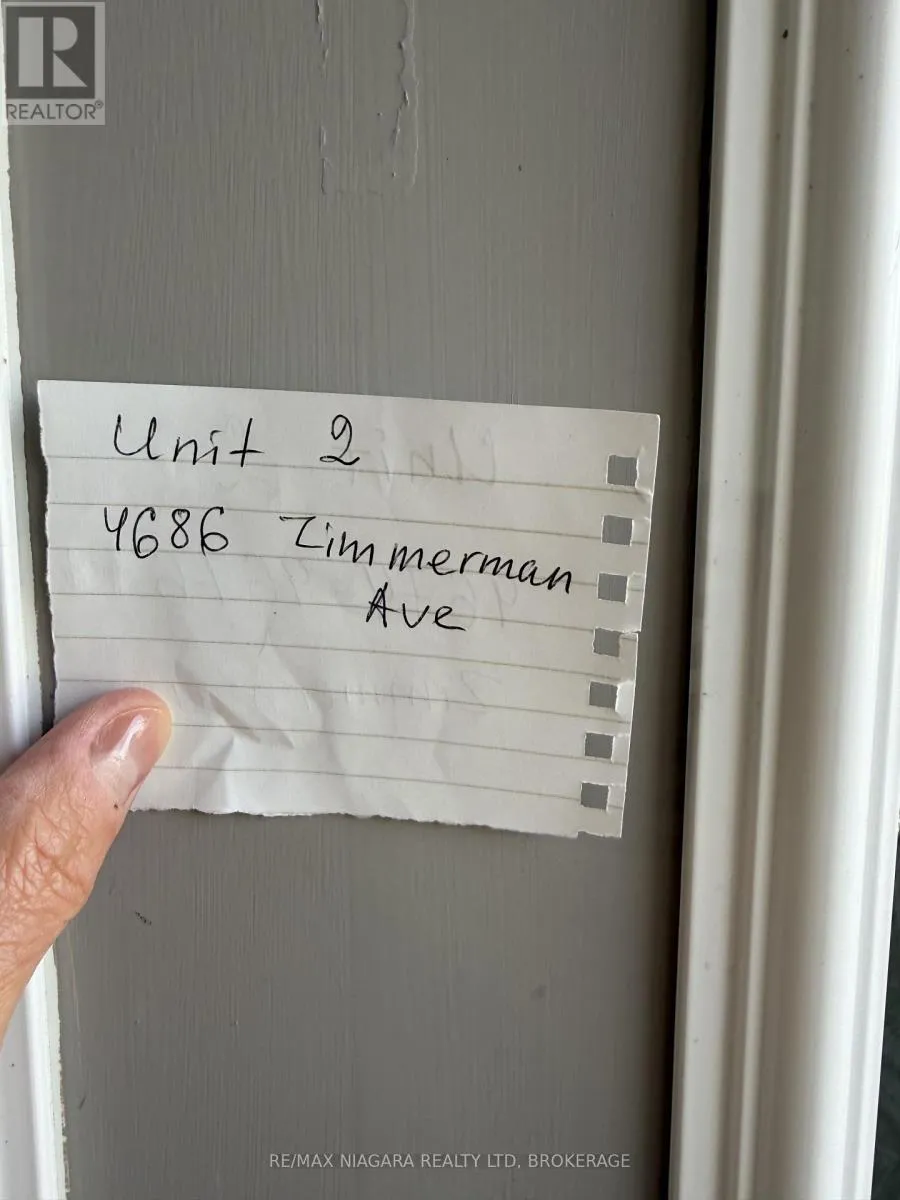 REALTOR®
Unit 2
4686 Zimmerman
Ave
RE/MAX NIAGARA REALTY LTD, BROKERAGE